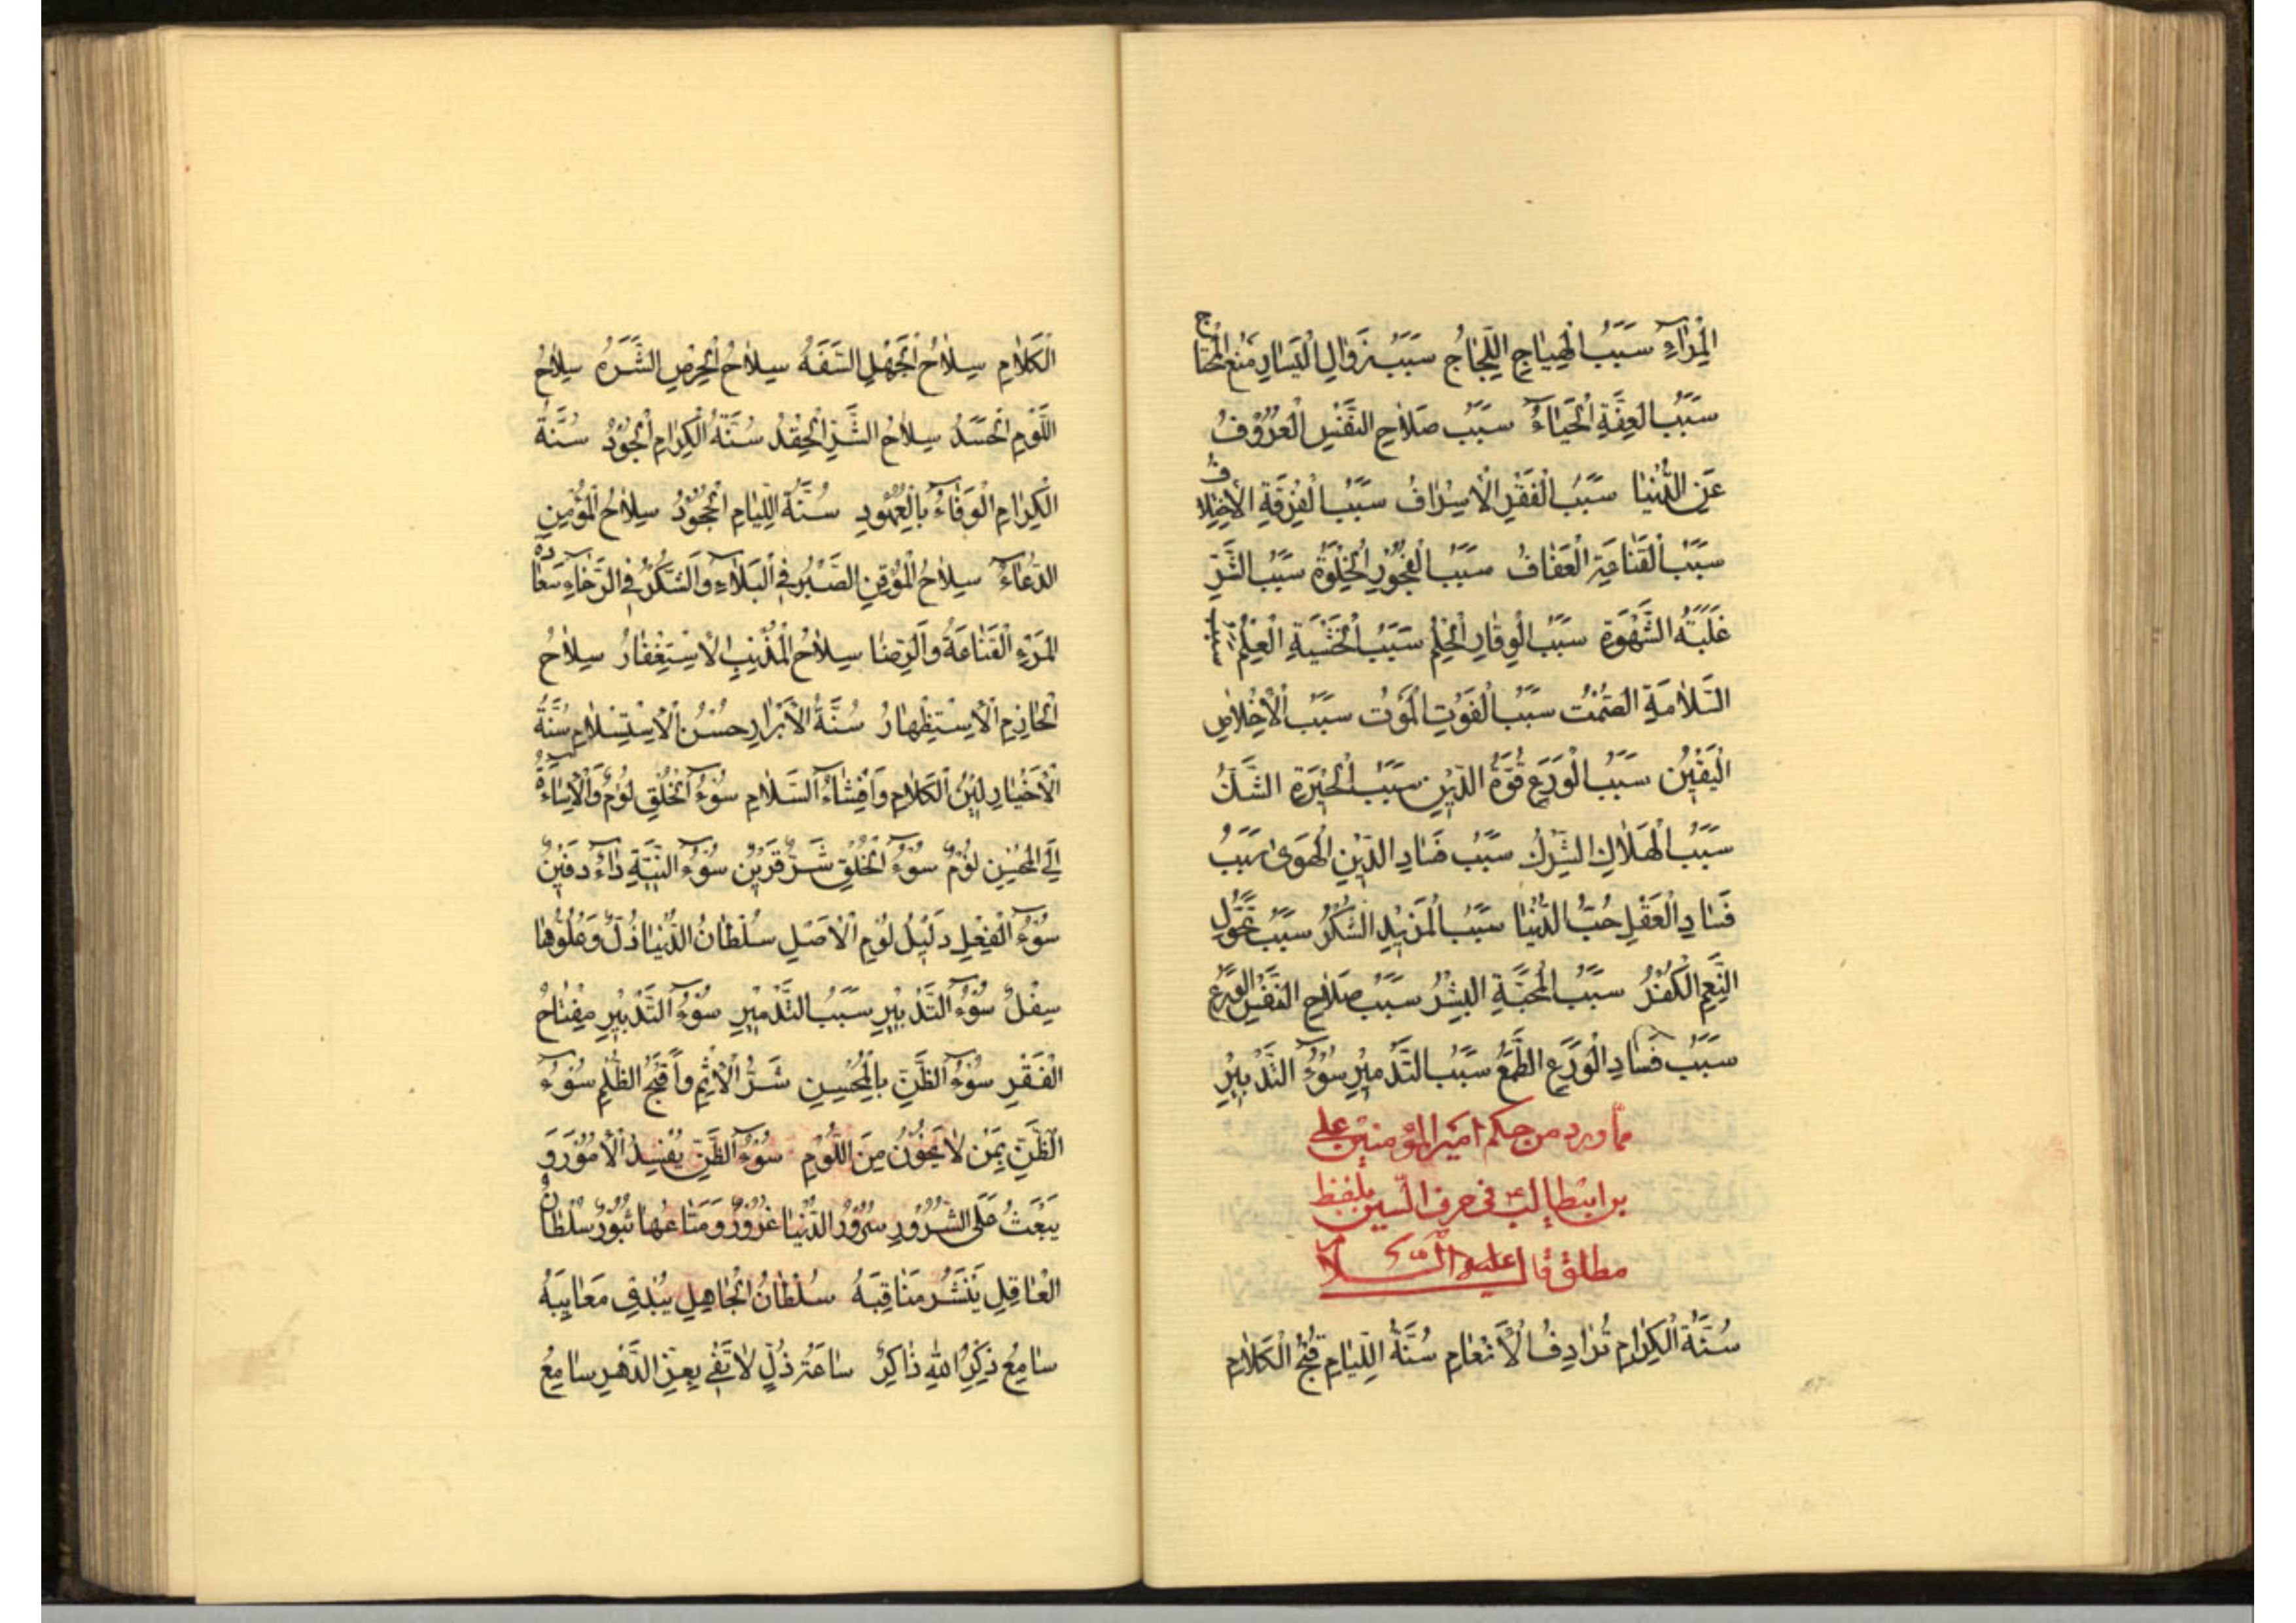 الْمِرَاءِ سَبَبُ الْهِيَاجِ اللَّجَاجُ سَبَبُ زَوَالِ الْيَسَارِ مَنْعُ الْمُحْتَاجِ
سَبَبُ الْعِفَّةِ الْحَيَاءُ سَبَبُ صَلَاحِ النَّفْسِ الْعُزُوْفُ
عَنِ الدُّنْيَا سَبَبُ الْفَقْرِ الْاِسْرَافُ سَبَبُ الْفُرْقَةِ الْاِخْتِلَافُ
سَبَبُ الْقَنَاعَةِ الْعَفَافُ سَبَبُ الْفُجُوْرِ الْخَلْوَةُ سَبَبُ الشَّرِّ
غَلَبَةُ الشَّهْوَةِ سَبَبُ الْوِقَارِ الْحِلْمُ سَبَبُ الْخَشْيَةِ الْعِلْمُ سبب
السَّلَامَةِ الصَّمْتُ سَبَبُ الْفَوْتِ الْمَوْتُ سَبَبُ الْاِخْلَاصِ
الْيَقِيْنُ سَبَبُ الْوَرَعِ قُوَّةُ الدِّيْنِ سَبَبُ الْحَيْرَةِ الشَّكُّ
سَبَبُ الْهَلَاكِ الشِّرْكُ سَبَبُ فَسَادِ الدِّيْنِ الْهَوَى سَبَبُ
فَسَادِ الْعَقْلِ حُبُّ الدُّنْيَا سَبَبُ الْمَزِيْدِ الشُّكْرُ سَبَبُ تَحَوُّلِ
النِّعَمِ الْكُفْرُ سَبَبُ الْمَحَبَّةِ الْبِشْرُ سَبَبُ صَلَاحِ النَّفْسِ الْوَرَعُ
سَبَبُ فَسَادِ الْوَرَعِ الطَّمَعُ سَبَبُ التَّدْمِيْرِ سُوْءُ التَّدْبِيْرِ
مما ورد من حكم امير المؤمنين علي
بن ابيطالب ع في حرف السين بلفظ
مطلق قال عليه السلام
سُنَّةُ الْكِرَامِ تَرَادُفُ الْاَنْعَامِ سُنَّةُ اللِّيَامِ قُبْحُ الْكَلَامِ
الْكَلَامِ سِلَاحُ الْجَهْلِ السَّفَهُ سِلَاحُ الْحِرْصِ الشَّرَهُ سِلَاحُ
اللُّؤْمِ الْحَسَدُ سِلَاحُ الشَّرِّ الْحِقْدُ سُنَّةُ الْكِرَامِ الْجُوْدُ سُنَّةُ
الْكِرَامِ الْوَفَاءُ بِالْعُهُوْدِ سُنَّةُ اللِّيَامِ الْجُحُوْدُ سِلَاحُ الْمُؤْمِنِ
الدُّعَاءُ سِلَاحُ الْمُؤْقِنِ الصَّبْرُ فِي الْبَلَاءِ وَالشُّكْرُ فِي الرَّخَاءِ سَعَادَةُ
الْمَرْءِ الْقَنَاعَةُ وَالرِّضَا سِلَاحُ الْمُذْنِبِ الْاِسْتِغْفَارُ سِلَاحُ
الْحَازِمِ الْاِسْتِظْهَارُ سُنَّةُ الْاَبْرَارِ حُسْنُ الْاِسْتِسْلَامِ سُنَّةُ
الْاَخْيَارِ لِيْنُ الْكَلَامِ وَاِفْشَاءُ السَّلَامِ سُوْءُ الْخُلْقِ لُؤْمٌ وَالْاِسَاءَةُ
اِلَى الْمُحْسِنِ لُؤْمٌ سُوْءُ الْخُلْقِ شَرُّ قَرِيْنٍ سُوْءُ النِّيَّةِ دَاءٌ دَفِيْنٌ
سُوْءُ الْفِعْلِ دَلِيْلُ لُؤْمِ الْاَصْلِ سُلْطَانُ الدُّنْيَا ذُلٌّ وَعُلُوُّهَا
سِفْلٌ سُوْءُ التَّدْبِيْرِ سَبَبُ التَّدْمِيْرِ سُوْءُ التَّدْبِيْرِ مِفْتَاحُ
الْفَقْرِ سُوْءُ الظَّنِّ بِالْمُحْسِنِ شَرُّ الْاِثْمِ وَاَقْبَحُ الظُّلْمِ سُوْءُ
الظَّنِّ بِمَنْ لَا يَخُوْنُ مِنَ اللُّؤْمِ سُوْءُ الظَّنِّ يُفْسِدُ الْاُمُوْرَ وَ
يَبْعَثُ عَلَى الشُّرُوْرِ سُرُوْرُ الدُّنْيَا غُرُوْرٌ وَمَتَاعُهَا ثُبُوْرٌ سُلْطَانُ
الْعَاقِلِ يَنْشُرُ مَنَاقِبَهُ سُلْطَانُ الْجَاهِلِ يُبْدِي مَعَايِبَهُ
سَامِعُ ذِكْرِ اللّٰهِ ذَاكِرٌ سَاعَةُ ذُلٍّ لَا تَفِي بِعِزِّ الدَّهْرِ سَامِعُ